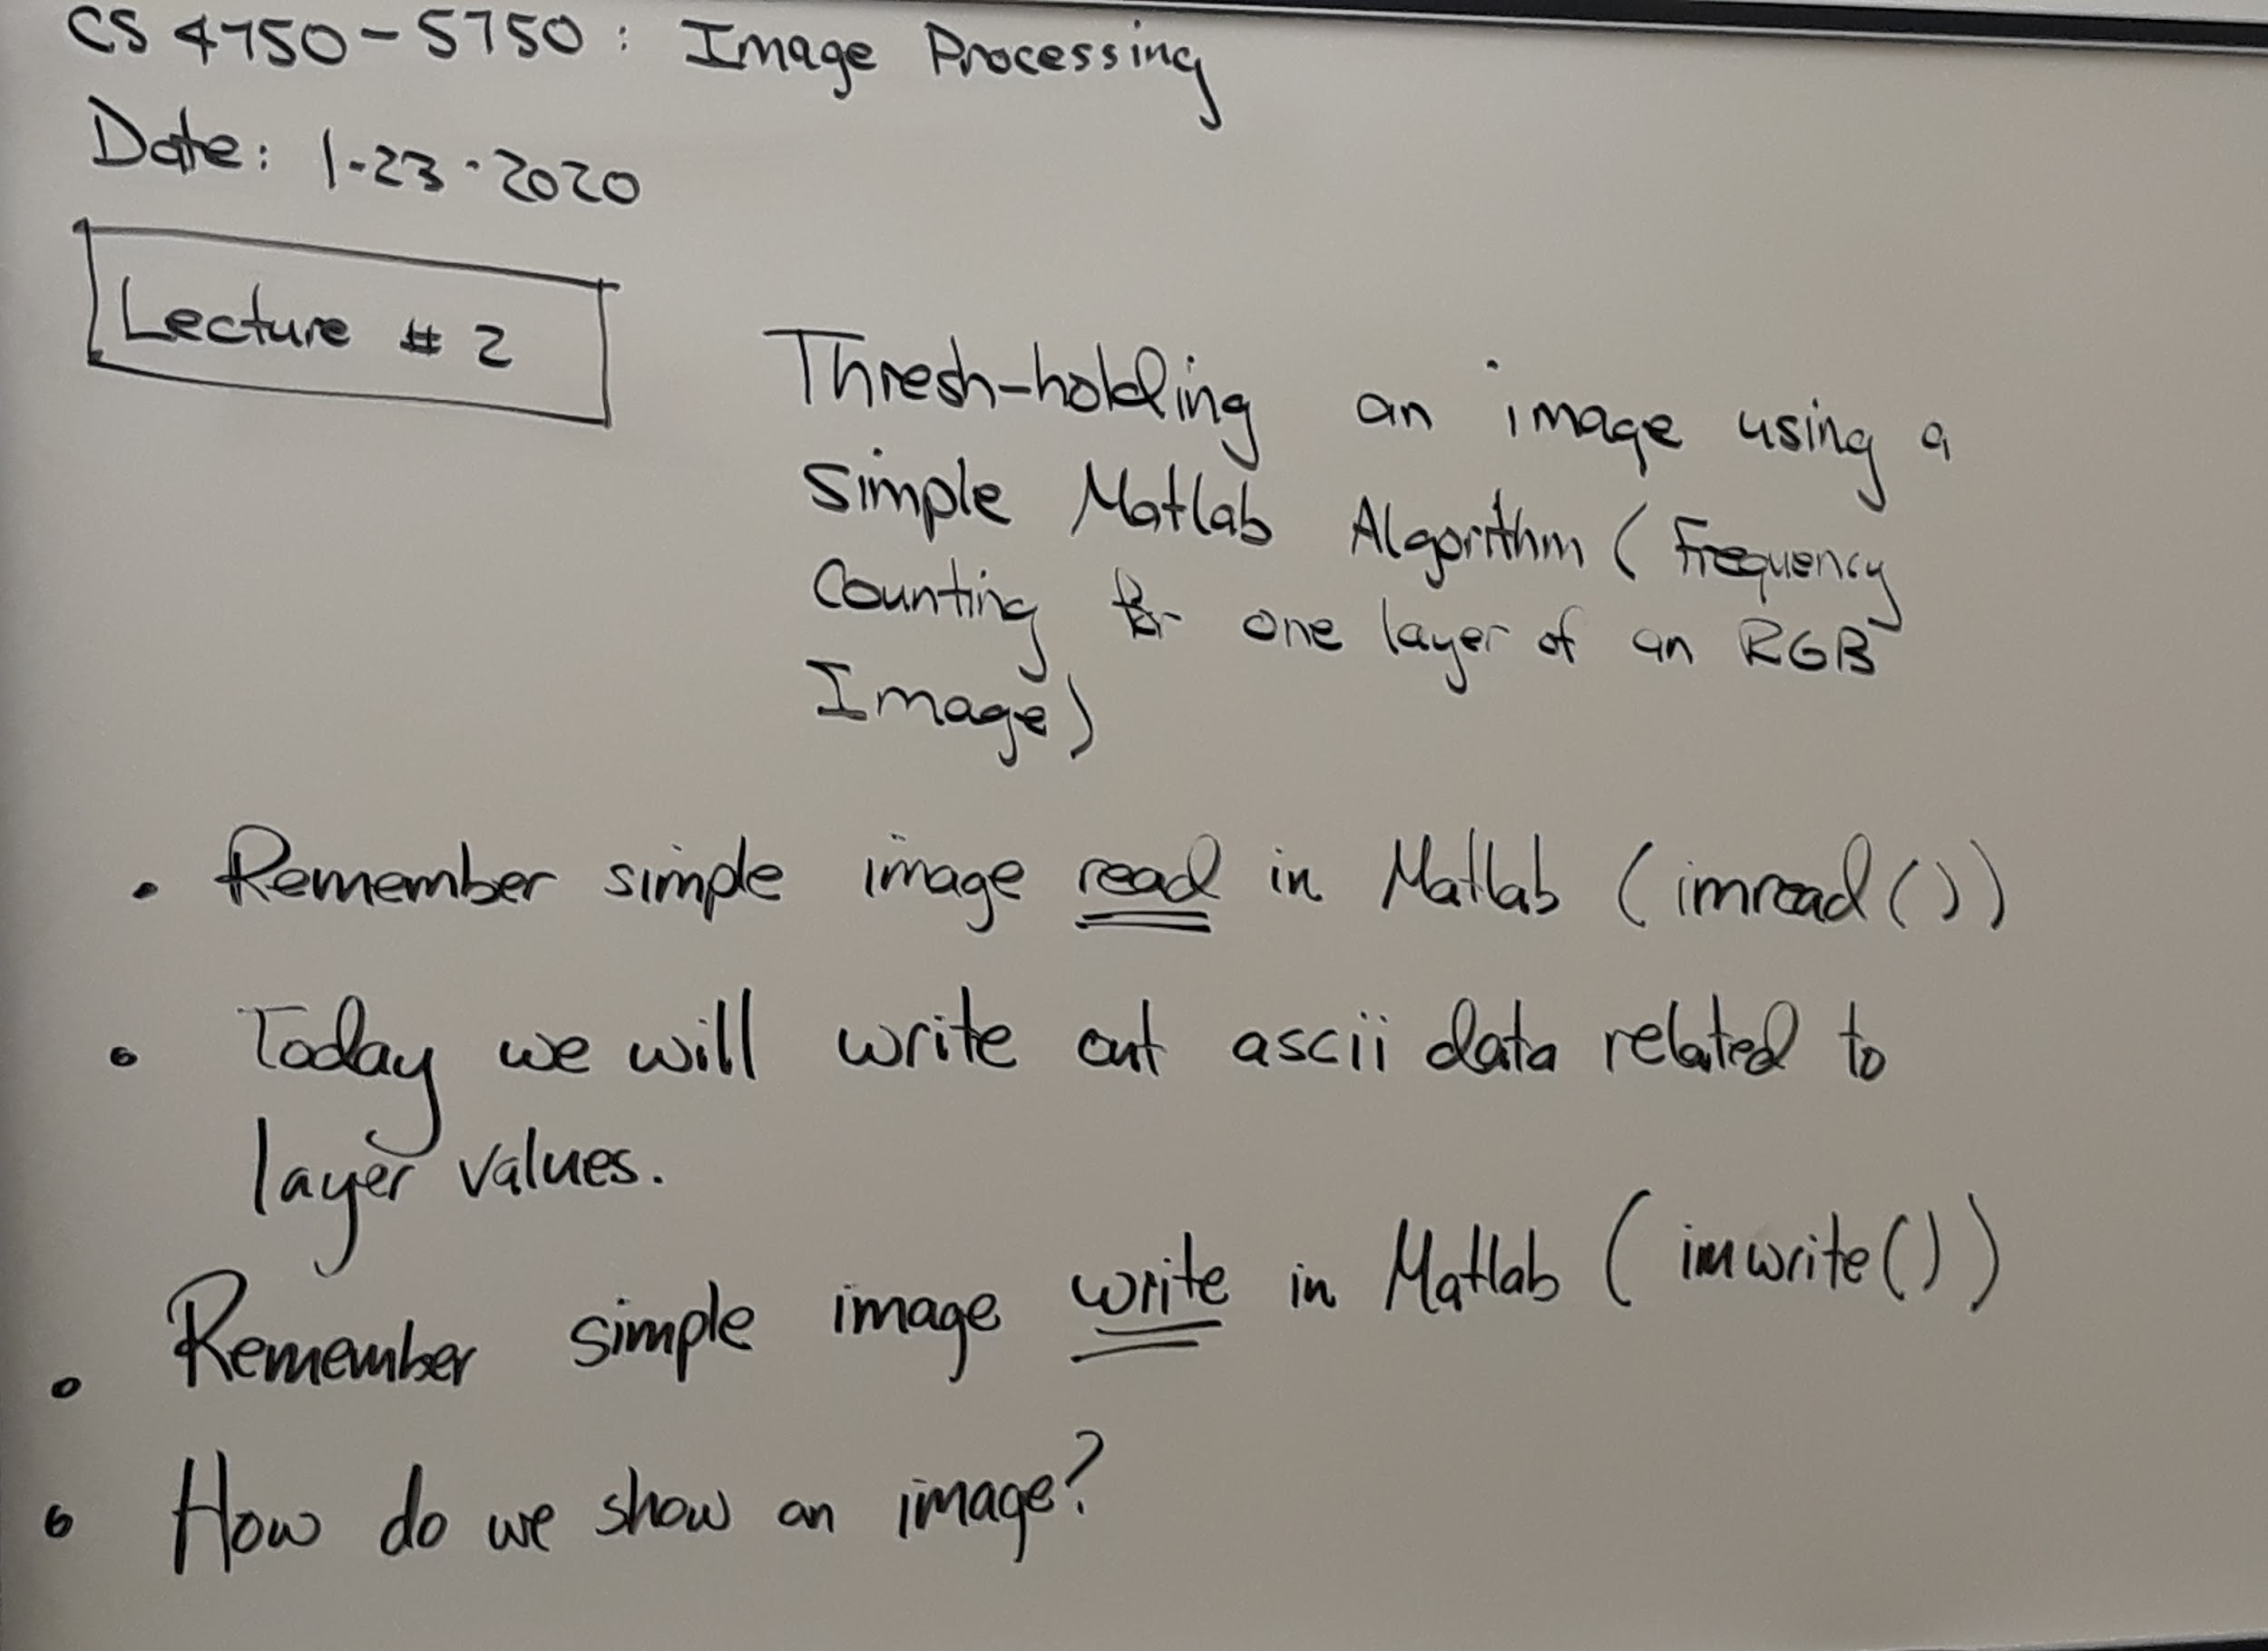 CS 4750-5750: Image Processing
Date: 1-23-2020
Lecture # 2
Thresh-holding an image using a
Simple Matlab Algorithm (Frequency
Counting for one layer of an RGB
Image)
• Remember simple image read in Matlab (imread())
• Today we will write out ascii data related to
layer values.
• Remember simple image write in Matlab (imwrite())
• How do we show an image?